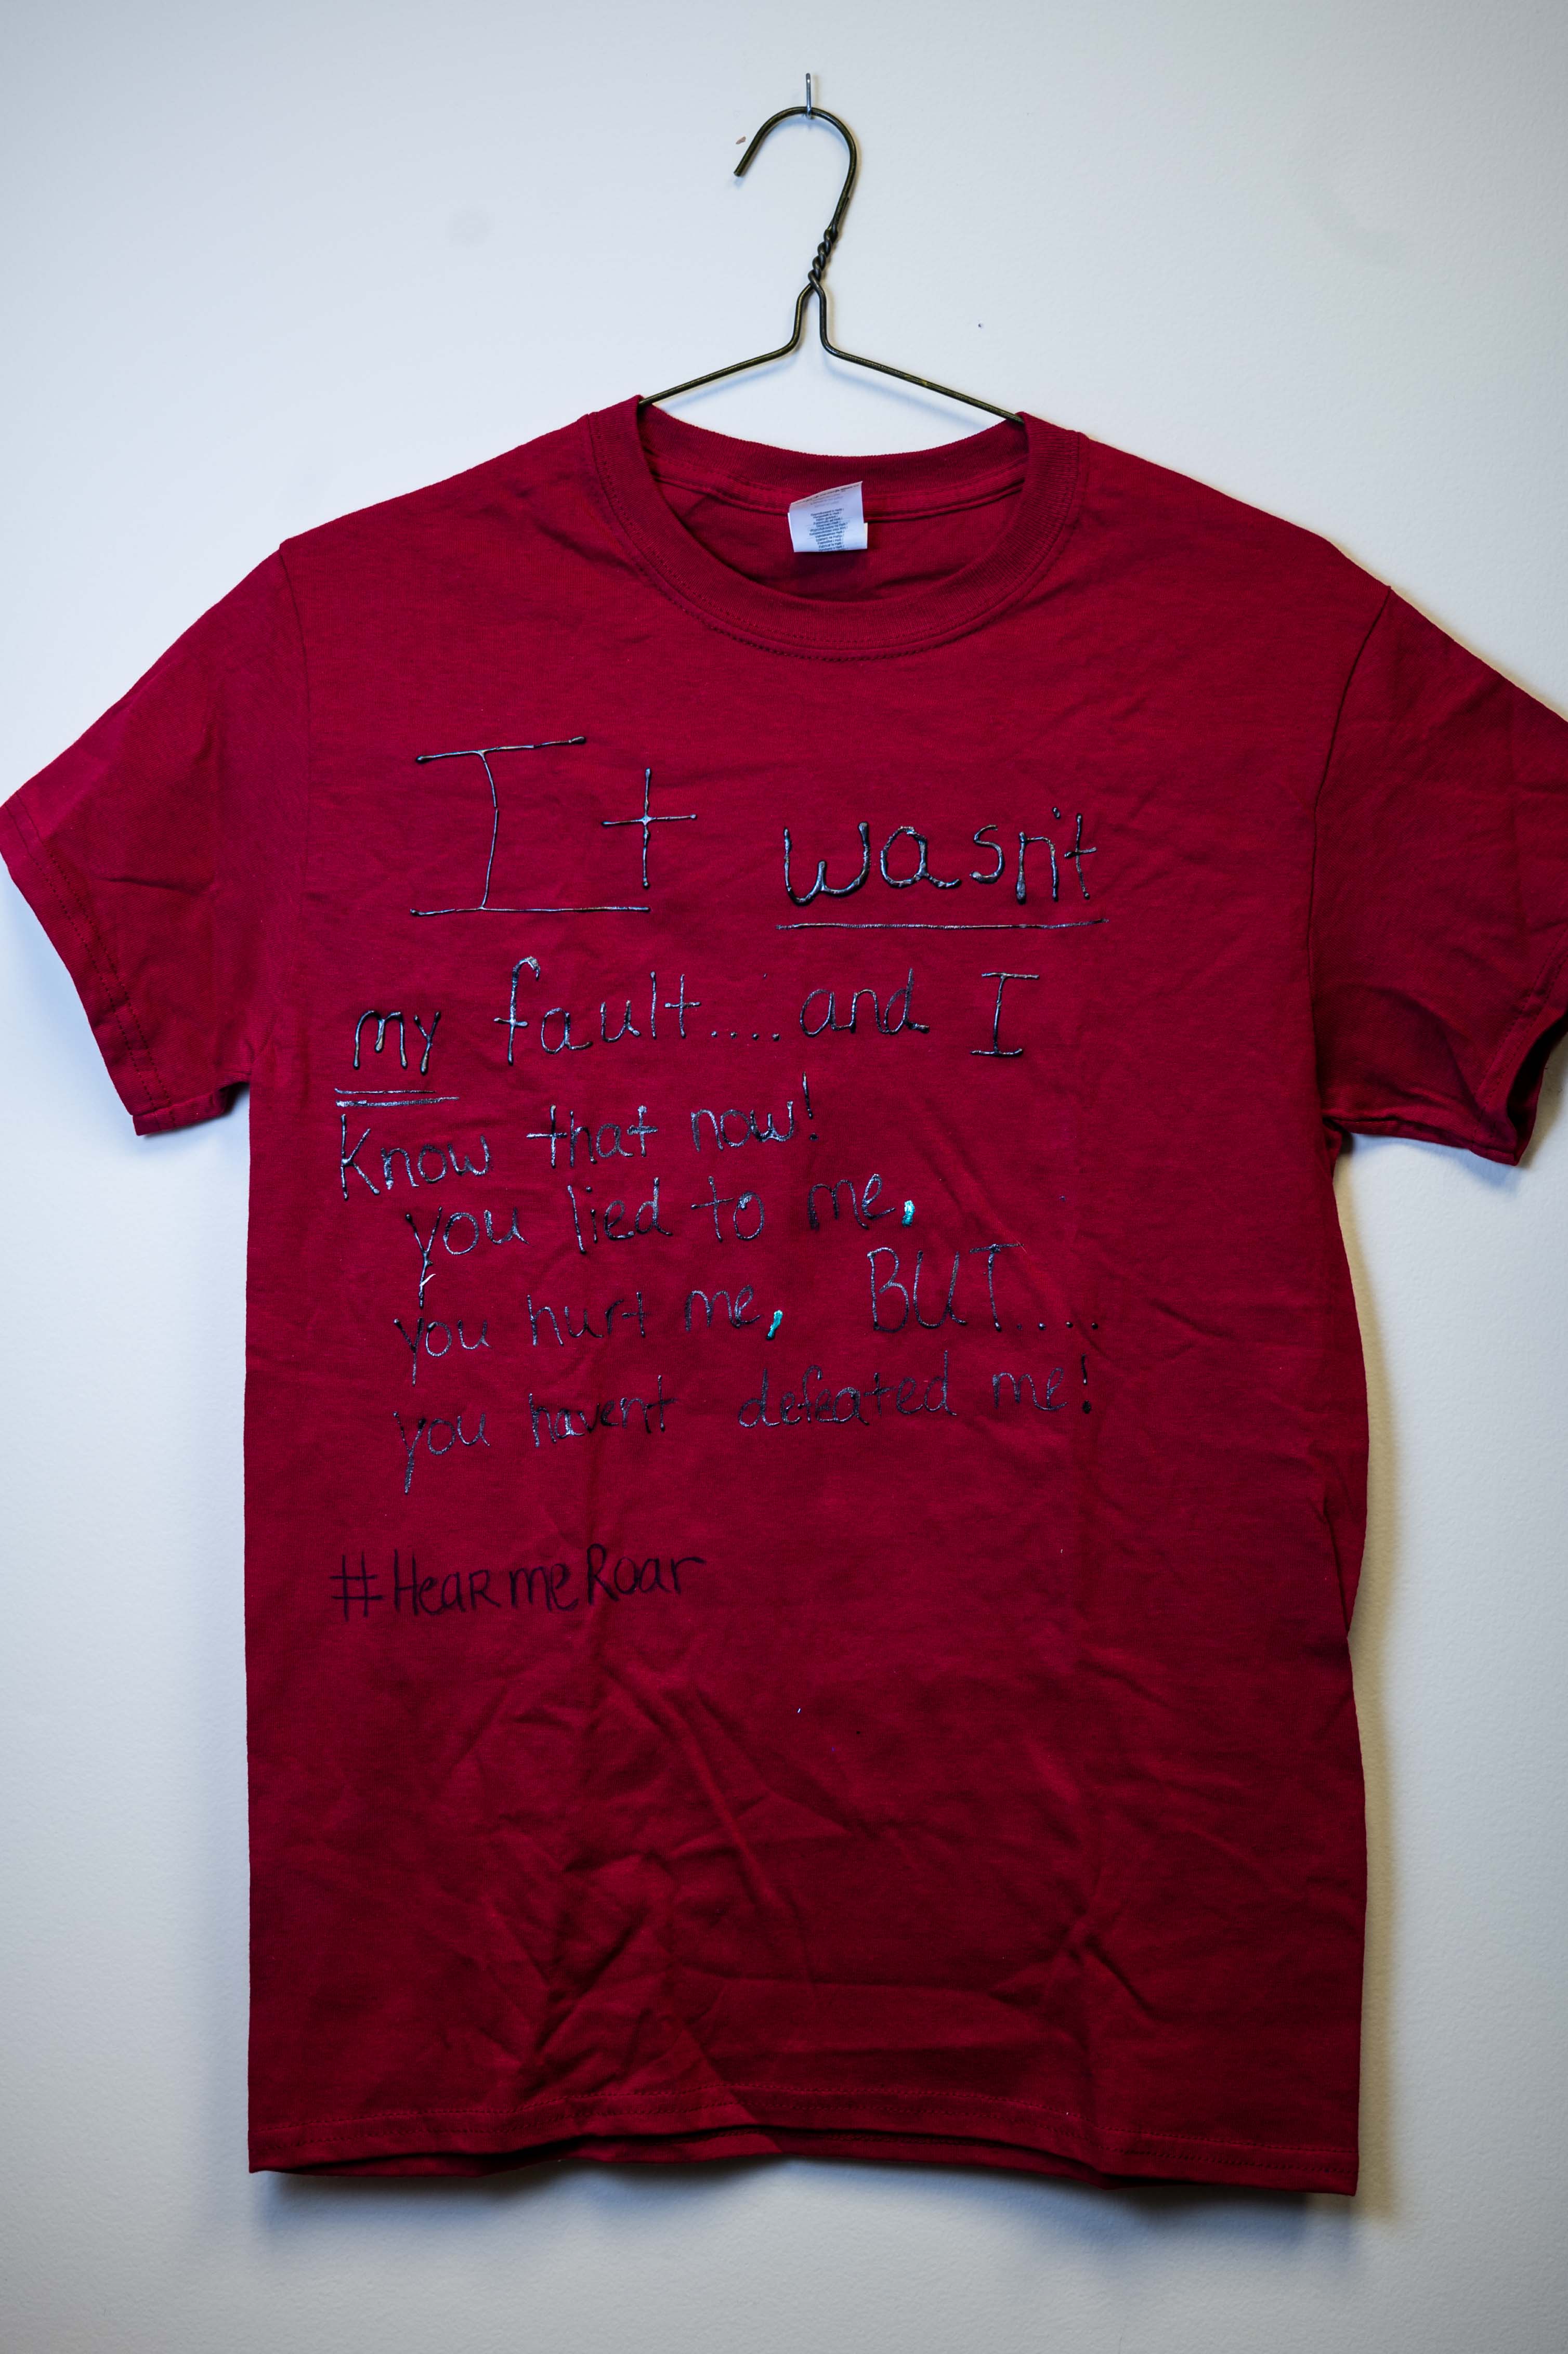 It wasn't
my fault.... and I
Know that now!
you lied to me,
you hurt me, BUT....
you havent defeated me!
#HearmeRoar